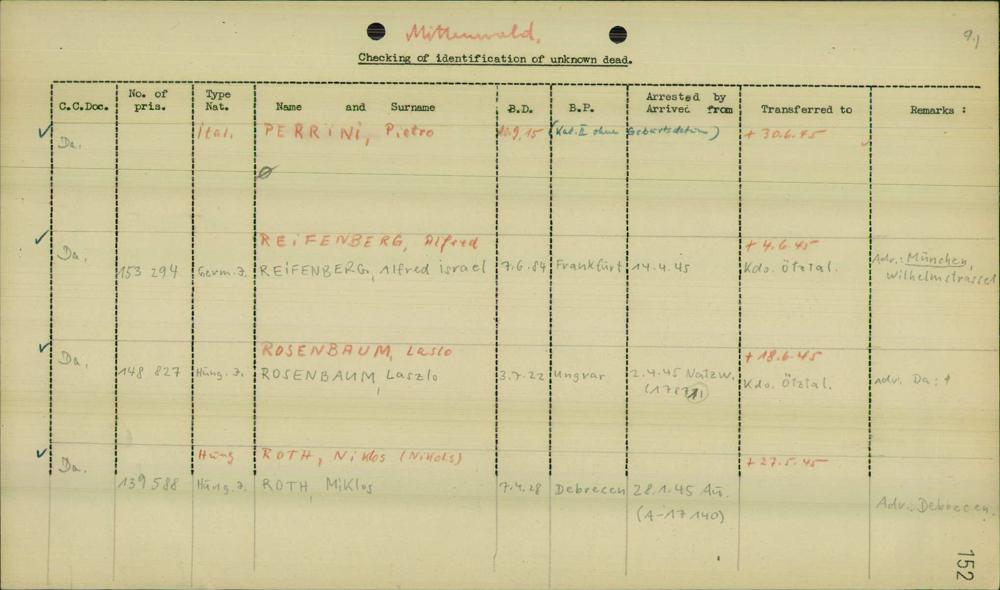 Mittenwald.
9.)
Checking of identification of unknown dead.
C.C.Doc. No. of pris. Type Nat. Name and Surname B.D. B.P. Arrested by Arrived from Transferred to Remarks :
Da. Ital. PERRINI, Pietro 10.9.15 (Kat. II ohne Geburtsdatum) + 30.6.45
REIFENBERG, Alfred + 4.6.45
Da. 153 294 Germ. J. REIFENBERG, Alfred israel 7.6.84 Frankfurt 14.4.45 Kdo. Ötztal. Adr.: München,
Wilhelmstrasse 1
ROSENBAUM, Laslo + 18.6.45
Da. 148 827 Hung. J. ROSENBAUM, Laszlo 3.7.22 Ungvar 2.4.45 Natzw. Kdo. Ötztal. Adr. Da: †
Hung ROTH, Niklos (Nikols) + 27.5.45
Da. 139 588 Hung. J. ROTH, Miklos 7.4.28 Debrecen 28.1.45 Au.
(A-17 140) Adr.: Debrecen.
152